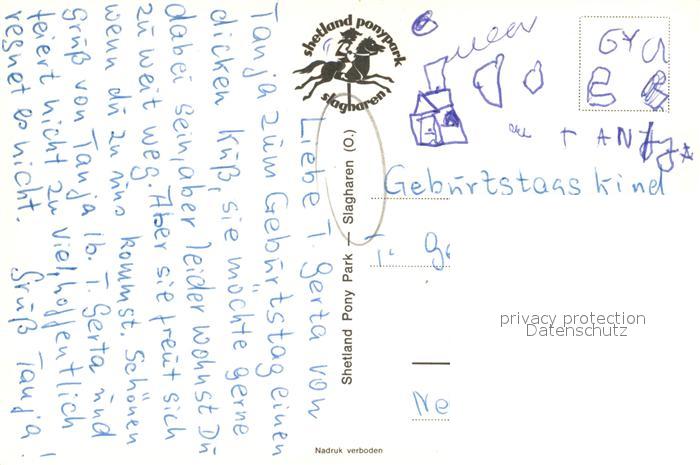 Liebe T. Gerta von
Tanja zum Geburtstag einen
dicken Kuß, sie möchte gerne
dabei sein, aber leider wohnst Du
zu weit weg. Aber sie freut sich
wenn du zu uns kommst. Schönen
Gruß von Tanja lb. T. Gerta und
feiert nicht zu viel, hoffentlich
regnet es nicht. Gruß Tanja!
shetland ponypark
slagharen
Shetland Pony Park — Slagharen (O.)
TAN
Geburtstagskind
T. Ge
Ne
privacy protection
Datenschutz
Nadruk verboden